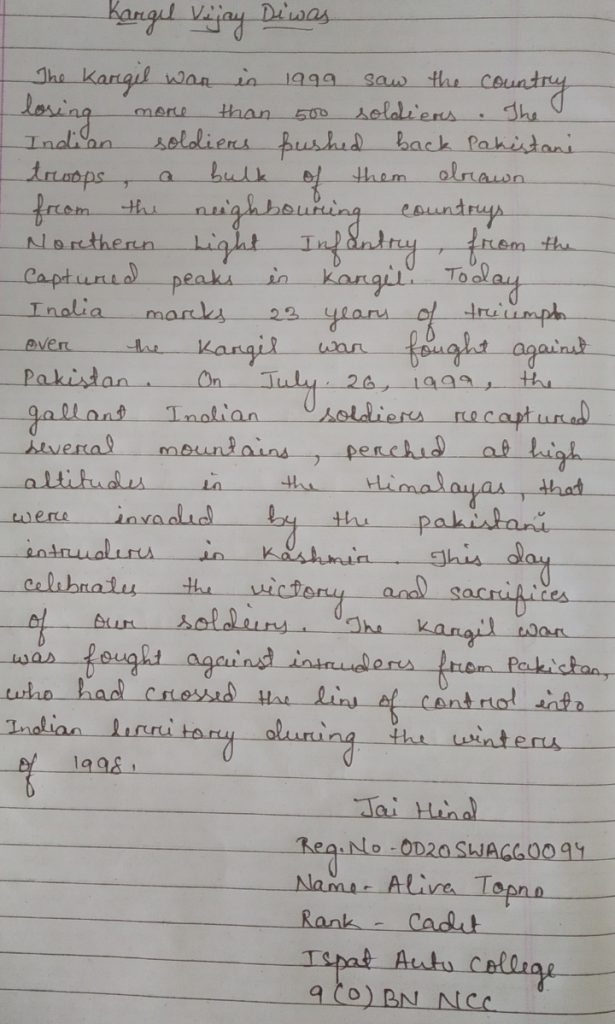 Kargil Vijay Diwas
The Kargil war in 1999 saw the country
losing more than 500 soldiers. The
Indian soldiers pushed back Pakistani
troops, a bulk of them drawn
from the neighbouring countrys
Northern Light Infantry, from the
Captured peaks in Kargil. Today
India marks 23 years of triumph
over the Kargil war fought against
Pakistan. On July. 26, 1999, the
gallant Indian soldiers recaptured
several mountains, perched at high
altitudes in the Himalayas, that
were invaded by the pakistani
intruders in Kashmir. This day
celebrates the victory and sacrifices
of our soldeirs. The Kargil war
was fought against intruders from Pakictan,
who had crossed the line of control into
Indian territory during the winters
of 1998.
Jai Hind
Reg.No - OD20SWA660094
Name - Aliva Topno
Rank - Cadet
Ispat Auto College
9 (O) BN NCC